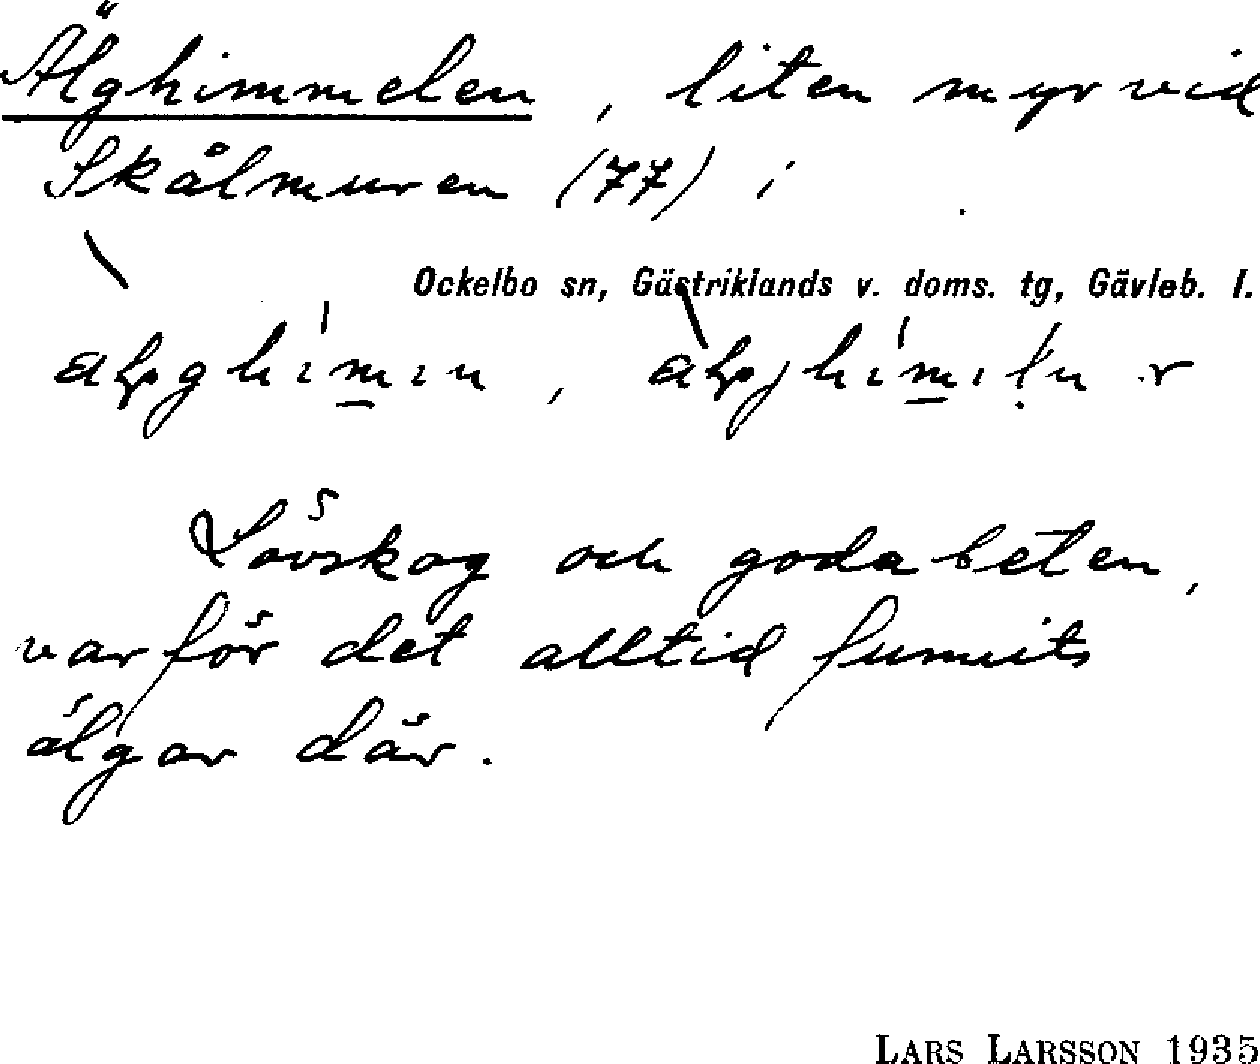 Älghimmelen, liten myr vid
Skålmuren (77) i
Ockelbo sn, Gästriklands v. doms. tg, Gävleb. l.
Lövskog och goda beten,
varför det alltid funnits
älgar där.
LARS LARSSON 1935